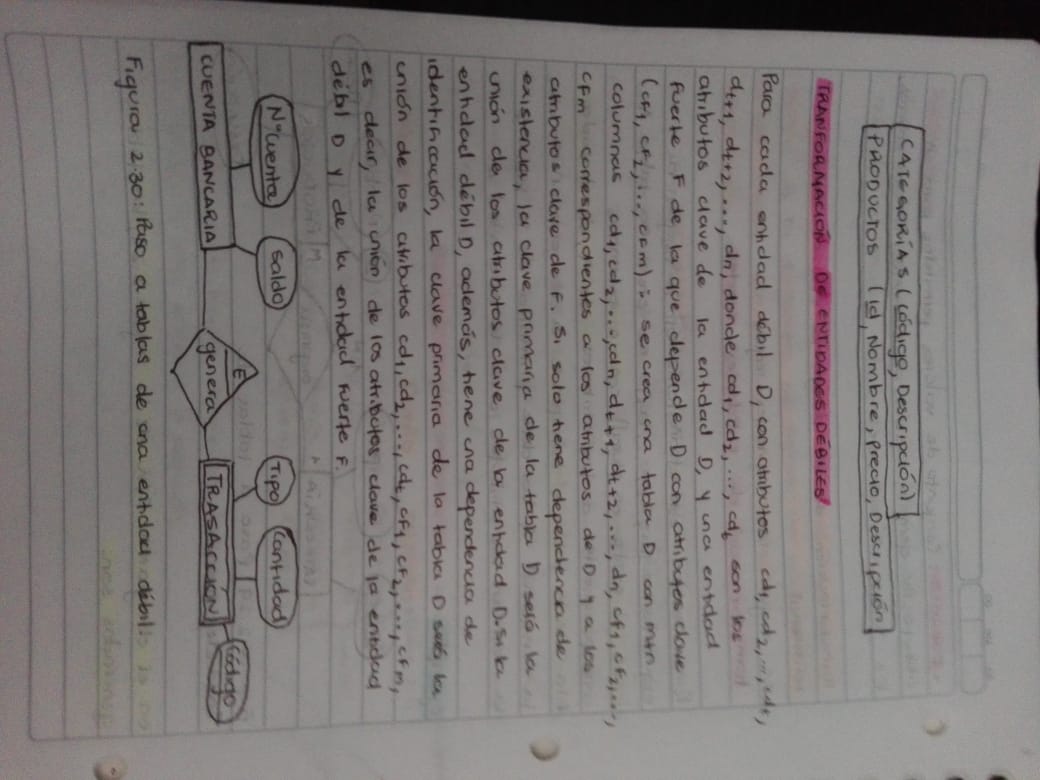 CATEGORÍAS (código, Descripción)
PRODUCTOS (Id, Nombre, Precio, Descripción)
TRANFORMACIÓN DE ENTIDADES DÉBILES
Para cada entidad débil D, con atributos cd1, cd2, ..., cdt,
dt+1, dt+2, ..., dn, donde cd1, cd2, ..., cdt son los
atributos clave de la entidad D, y una entidad
fuerte F de la que depende D con atributos clave
(cf1, cf2, ..., cfm): se crea una tabla D con m+n
columnas cd1, cd2, ..., cdn, dt+1, dt+2, ..., dn, cf1, cf2, ...,
cfm correspondientes a los atributos de D y a los
atributos clave de F. Si solo tiene dependencia de
existencia, la clave primaria de la tabla D será la
unión de los atributos clave de la entidad D. Si la
entidad débil D, además, tiene una dependencia de
identificación, la clave primaria de la tabla D será la
unión de los atributos cd1, cd2, ..., cdt, cf1, cf2, ..., cfm,
es decir, la unión de los atributos clave de la entidad
débil D y de la entidad fuerte F.
N° cuenta
Saldo
Tipo
Cantidad
Código
CUENTA BANCARIA
E
genera
TRASACCION
Figura 2.30: Paso a tablas de una entidad débil.